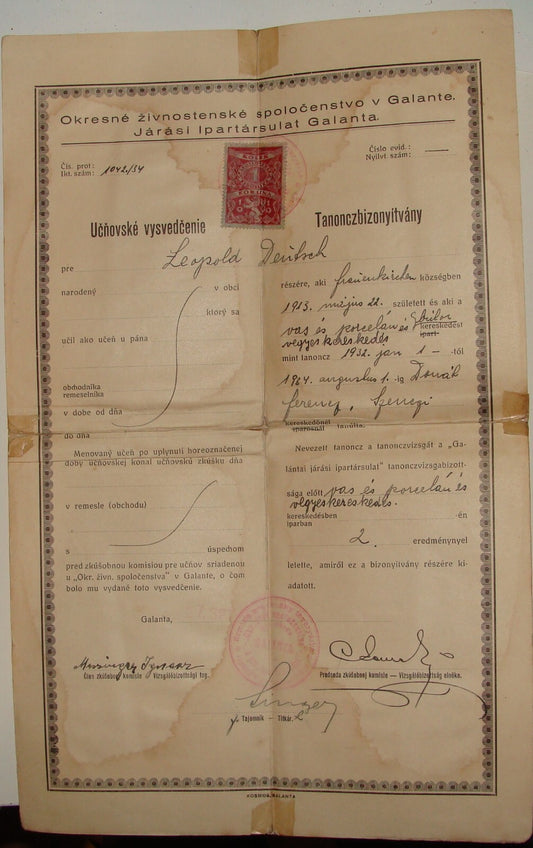 Okresné živnostenské spoločenstvo v Galante.
Járási Ipartársulat Galanta.
Čís. prot:
Ikt. szám: 1042/34
Číslo evid.:
Nyilvt. szám:
KOLEK
1
KORUNA
Učňovské vysvedčenie
Tanonczbizonyítvány
Leopold Deutsch
pre
narodený v obci
ktorý sa
učil ako učeň u pána
obchodníka
remeselníka
v dobe od dňa
do dňa
Menovaný učeň po uplynutí horeoznačenej
doby učňovskej konal učňovskú zkúšku dňa
v remesle (obchodu)
s úspechom
pred zkúšobnou komisiou pre učňov sriadenou
u „Okr. živn. spoločenstva” v Galante, o čom
bolo mu vydané toto vysvedčenie.
részére, aki Frauenkirchen községben
1913. május 22. született és aki a
vas és porcelán és
vegyeskereskedés kereskedést
ipart
mint tanoncz 1932. jan 1 - -tól
1934. augusztus 1. -ig Donáth
Ferenc, Szeredi
kereskedőnél
iparosnál tanúlta.
Nevezett tanoncz a tanonczvizsgát a „Ga-
lántai járási ipartársulat” tanonczvizsgabizott-
sága előtt vas és porcelán és
vegyeskereskedés.
kereskedésben
iparban -én
2. eredménynyel
letette, amiről ez a bizonyítvány részére ki-
adatott.
Galanta,
Člen zkúšobnej komisie — Vizsgálóbizottsági tag.
Predseda zkúšobnej komisie — Vizsgálóbizottság elnöke.
Singer
Tajomník — Titkár.
KOSMOS, GALANTA